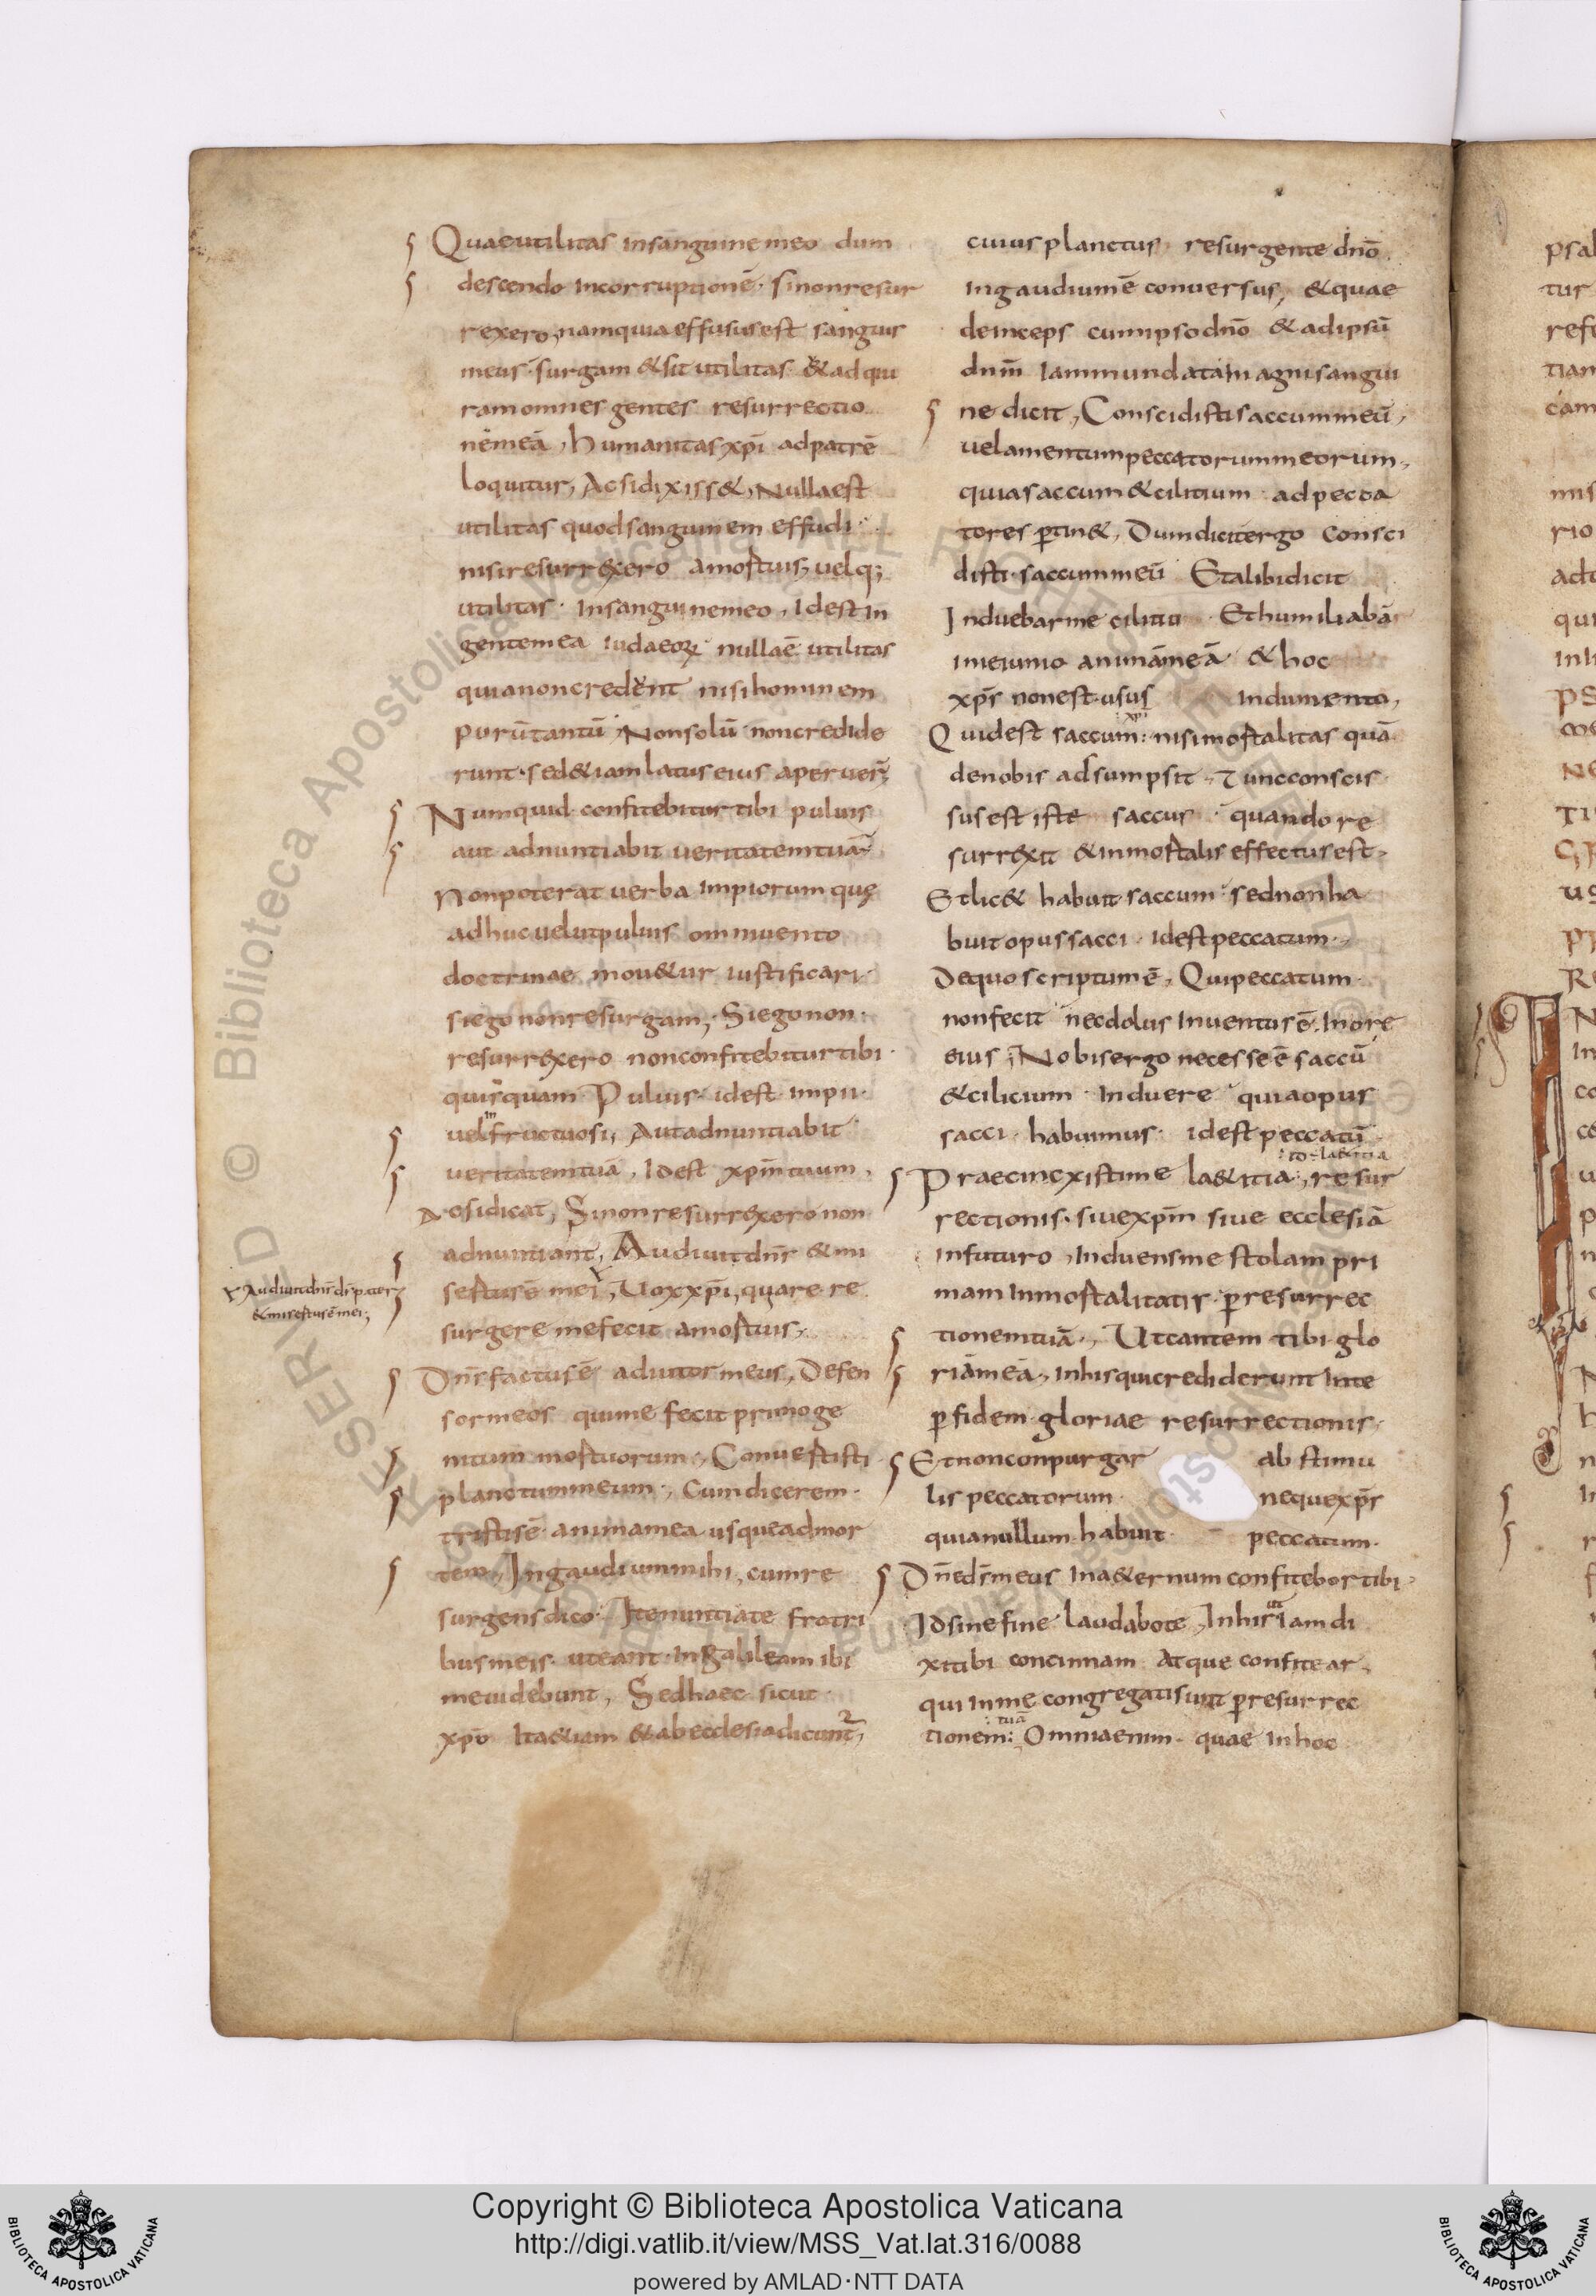 Quae utilitas In sanguine meo dum
descendo Incorruptionē. Sinonresur
rexero, namquia effusus est sanguis
meus. Surgam & sit utilitas & ad qui
ram omnes gentes resurrectio
nē meā, humanitas xp̄i ad patrē
loquitur, Acsi dixiss&, Nulla est
utilitas quod sanguinem effudi
nisi resurrexero a mortuis, uel q;
utilitas. In sanguine meo, Idest In
gente mea iudaeoꝝ nulla ē utilitas
quia non credent nisi hominem
purū tantū, Non solū non credide
runt. sed &iam latus eius aperuer̄
Numquid confitebitur tibi puluis
aut adnuntiabit ueritatem tuā
Non poterat uerba Impiorum quę
adhuc uelut puluis omni uento
doctrinae mou&ur iustificari.
si ego non resurgam, Si ego non
resurrexero non confitebitur tibi
quisquam Puluis. idest impii.
uel infructuosi, Aut adnuntiabit
ueritatem tuā, Idest xp̄m tuum,
Acsi dicat, Si non resurrexero non
adnuntiant, Audiuit dn̄s & mi
sertus ē mei, Uox xp̄i, quare re
surgere me fecit a mortuis,
Audiuit dn̄s ds̄ pater
& misertus ē mei;
Dn̄s factus ē adiutor meus, Defen
sor meos qui me fecit primoge
nitum mortuorum, Conuertisti
planctum meum, Cum dicerem
tristis ē anima mea usque ad mor
tem, In gaudium mihi, cum re
surgens dico. Ite nuntiate fratri
bus meis. ut eant. In galileam ibi
me uidebunt, Sed haec sicut
xp̄o Ita &iam & ab ecclesia dicunt,
cuius planctus resurgente dn̄o
In gaudium ē conuersus, & quae
deinceps cum ipso dn̄o & ad ipsū
dn̄m Iam mundata In agni sangui
ne dicit, Conscidisti saccum meū,
uelamentum peccatorum meorum,
quia saccum & cilitium ad pecca
tores ꝑtin&, Dum dicit ergo Consci
disti. saccum meū Et alibi dicit
Induebar me cilitio Et humiliabā
in ieiunio animā meā & hoc
xp̄s non est usus Indumento,
Quid est saccum: nisi mortalitas quā
de nobis adsumpsit. Tunc conscis
sus est iste saccus quando re
surrexit & inmortalis effectus est.
Et lic& habuit saccum. sed non ha
buit opus sacci. idest peccatum.
De quo scriptum ē, Qui peccatum
non fecit nec dolus Inuentus ē. In ore
eius, Nobis ergo necesse ē saccū
& cilicium Induere quia opus
sacci. habuimus. idest peccatū
Praecinexisti me la&itia, resur
rectionis. siue xp̄m siue ecclesiā
In futuro, Induens me stolam pri
mam Inmortalitatis. ꝑ resurrec
tionem tuā., Ut cantem tibi glo
riā meā, In his qui crediderunt In te
ꝑ fidem gloriae resurrectionis,
Et non conpungar ab stimu
lis peccatorum neque xp̄s
quia nullum habuit peccatum.
Dn̄e ds̄ meus In a&ernum confitebor tibi.
Id sine fine laudabo te, In his iam di
xi tibi concinnam Atque confitear,
qui In me congregati sunt ꝑ resurrec
tuā
tionem: Omnia enim quae In hoc
Copyright © Biblioteca Apostolica Vaticana
http://digi.vatlib.it/view/MSS_Vat.lat.316/0088
powered by AMLAD·NTT DATA